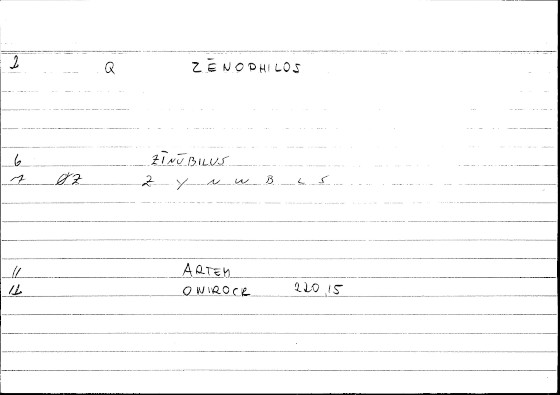 1 Q ZĒNOPHILOS
6 ZĪNŪBILUS
7 ØZ Z Y N W B L S
11 ARTEM
12 ONIROCR 220,15